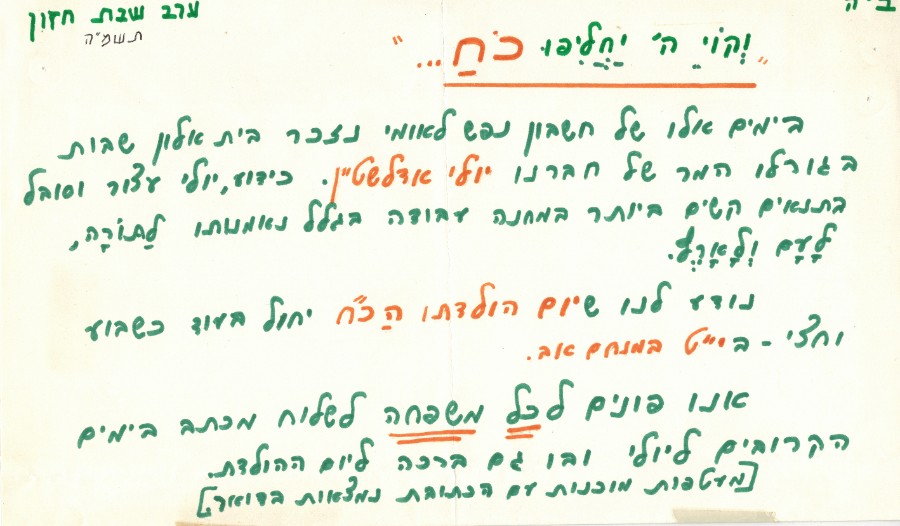 ב"ה
ערב שבת חזון
תשמ"ה
"וְקוֹיֵ ה' יַחֲלִיפוּ כֹחַ..."
בימים אלו של חשבון נפש לאומי נזכר בית אלון שבות
בגורלו המר של חברנו יולי אדלשטיין. כידוע, יולי עצור וסובל
בתנאים קשים ביותר במחנה עבודה בגלל נאמנותו לַתּוֹרָה,
לָעָם וְלָאָרֶץ.
נודע לנו שיום הולדתו הַכ"ח יחול בעוד כשבוע
וחצי - בי"ט במנחם אב.
אנו פונים לכל משפחה לשלוח מכתב בימים
הקרובים ליולי ובו גם ברכה ליום ההולדת.
[מעטפות מוכנות עם הכתובת נמצאות בדואר]